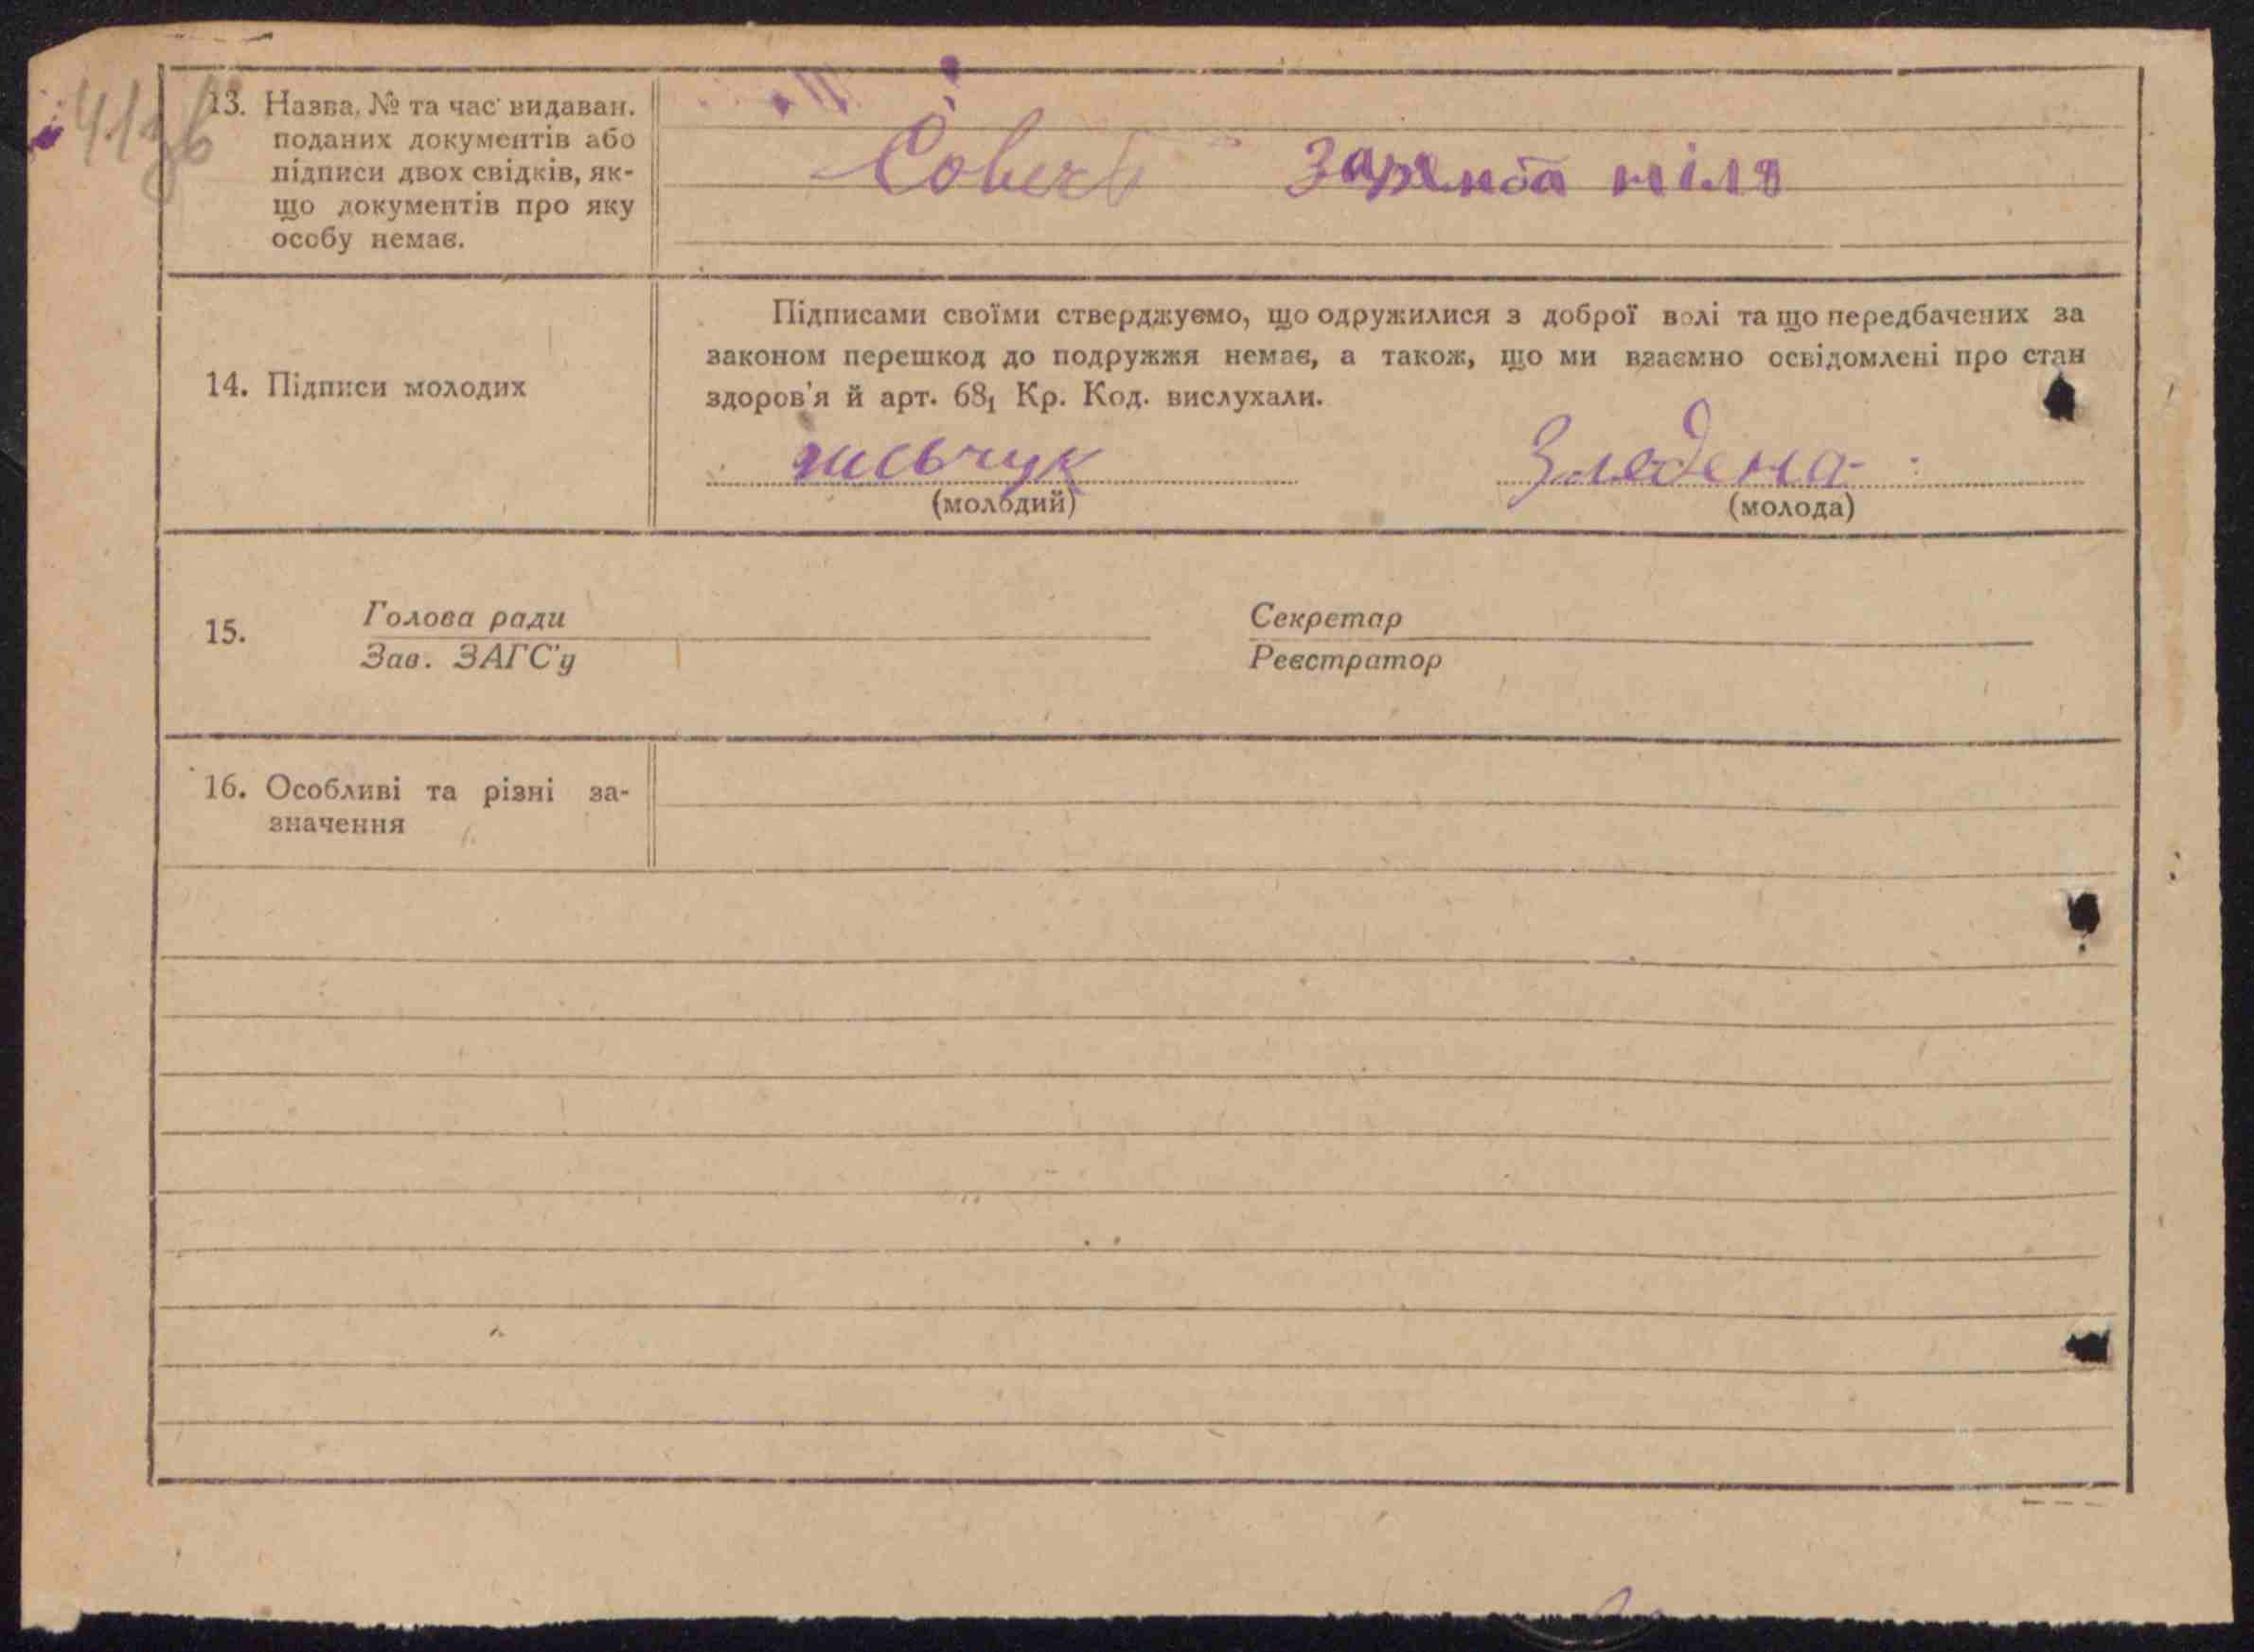 13. Назва, № та час видаван.
поданих документів або
підписи двох свідків, як-
що документів про яку
особу немає.
Заремба
14. Підписи молодих
Підписами своїми стверджуємо, що одружилися з доброї волі та що передбачених за
законом перешкод до подружжя немає, а також, що ми взаємно освідомлені про стан
здоров'я й арт. 68₁ Кр. Код. вислухали.
(молодий)
(молода)
15. Голова ради Секретар
Зав. ЗАГС'у Реєстратор
16. Особливі та різні за-
значення